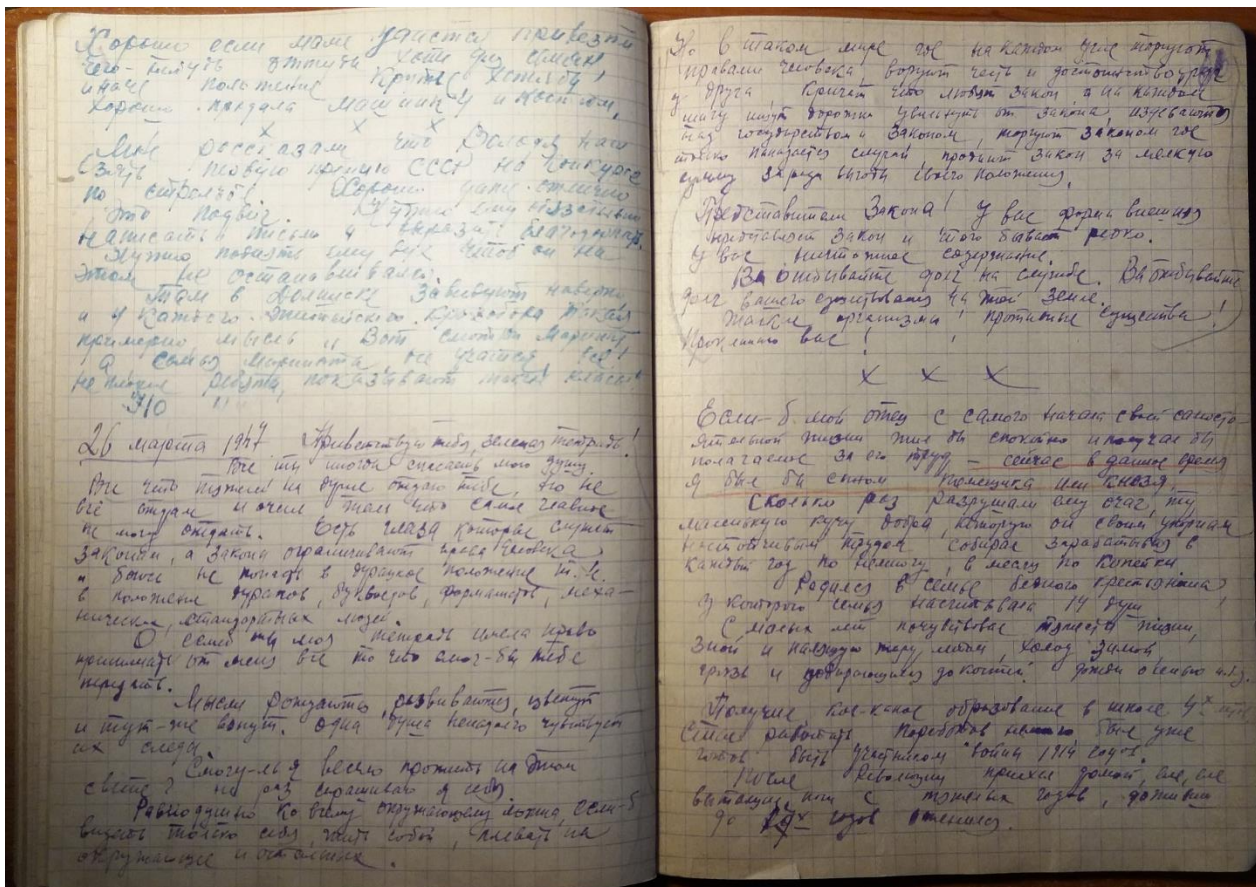 Хорошо если маме удастся привезти
чего-нибудь оттуда хотя для семьи
иначе положение кроме хлеба!
Хорошо продала машинку и костюм.
х х х
Мне рассказали что Володя наш
взять первую премию СССР на конкурсе
по стрельбе. Хорошо даже отлично
Это подвиг. Нужно ему
написать письмо и выразить благодарность.
Нужно поднять ему дух чтоб он на
этом не останавливался.
Там в
и у каждого
примерно мысль „ Вот смотри
а семья не учатся все!
не плохие ребята, показывают такой класс!

26 марта 1947. Приветствую тебя, зеленая тетрадь!
Все ты могла спасать мою душу.
Все что тяжело на душе отдаю тебе, но не
всё отдам и очень жаль что самое главное
не могу отдать. Есть глаза которые служат
законам, а законы ограничивают права человека
и боюсь не попасть в дурацкое положение т.е.
в положение дураков, буквоедов, форматов, меха-
нических, стандартных людей.
О если ты моя тетрадь имела право
принимать от меня все то что смог-бы тебе
передать.
Мысли рождаются, развиваются, цветут
и тут-же вянут. Одна душа ненадолго чувствует
их следы.
Смогу-ль я весело прожить на этом
свете? не раз спрашиваю я себя
Равнодушно ко всему окружающему можно, если-б
видеть только себя, жить собой, плевать на
окружающие и остальных.
Но в таком мире где на каждом углу торгуют
правами человека, воруют честь и достоинство друг
у друга. Кричат что любят закон, а на каждом
шагу ищут дорожки увильнуть от закона, издеваются
над государством и законом, торгуют законом где
только попадается случай, продают закон за мелкую
сумму заради выгоды своего положения.
Представители Закона! У вас форма внешняя
представляет закон и того бывает редко.
У вас ничтожное содержание.
Вы отбывайте долг на службе. Вы отбывайте
долг вашего существования на той земле.
Жалкие организмы, противные существа!
Проклинаю вас!
х х х
Если-б мой отец с самого начала своей самосто-
ятельной жизни жил бы спокойно и получал бы
полагаемое за его труд — сейчас в данное время
я был бы сыном помещика или князя.
Сколько раз разрушали ему очаг, ту
маленькую кучу добра, которую он своим упорным
настойчивым трудом собирал зарабатывая в
каждый год по немногу, в месяц по копейки
Родился в семье бедного крестьянина,
у которого семья насчитывала 14 душ
С малых лет почувствовал тяжесть жизни,
зной и палящую жару летом, холод зимой,
грязь и добирающиеся до костей дожди осенью и т.д.
Получив кое-какое образование в школе 4х
стал работать. Поработав немного, был уже
готов быть участником войны 1914 годов.
После Революции приехал домой, еле, еле
вытащив ноги с тяжелых годов, доживши
до годов женился.